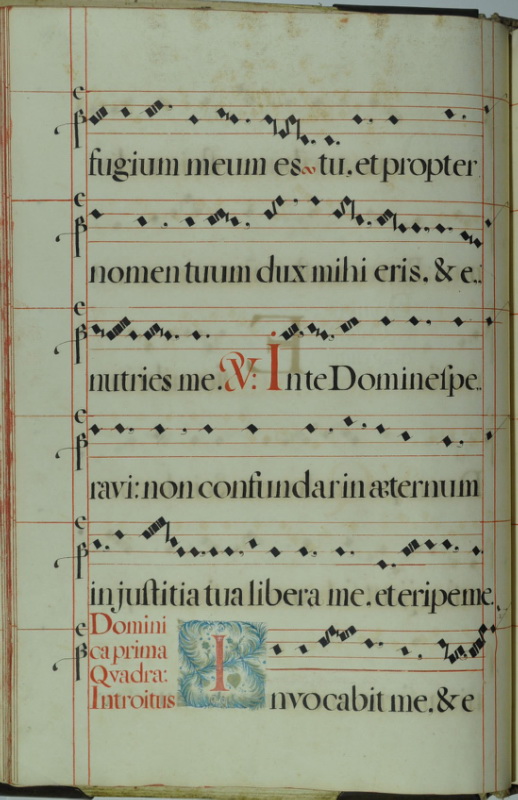 fugium meum es tu, et propter
nomen tuum dux mihi eris, & e,,
nutries me. V: In te Domine ſpe,,
ravi: non confundar in æternum
in juſtitia tua libera me, et eripe me.
Domini
ca prima
Qvadra:
Introitus
Invocabit me, & e